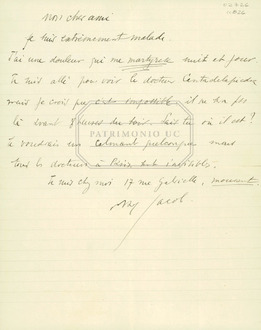 Mon cher ami
je suis extrêmement malade.
J'ai une douleur qui me martyrise nuit et jour.
Je suis allé pour voir le docteur
mais je crois que c'est impossible il n'a pas
là avant 8 heures du soir. Sais-tu où il est?
Je voudrais un calmant quelconque mais
tous les docteurs à Paris sont invisibles.
Je suis chez moi 17 rue Gabrielle, mourant.
Max Jacob
PATRIMONIO UC